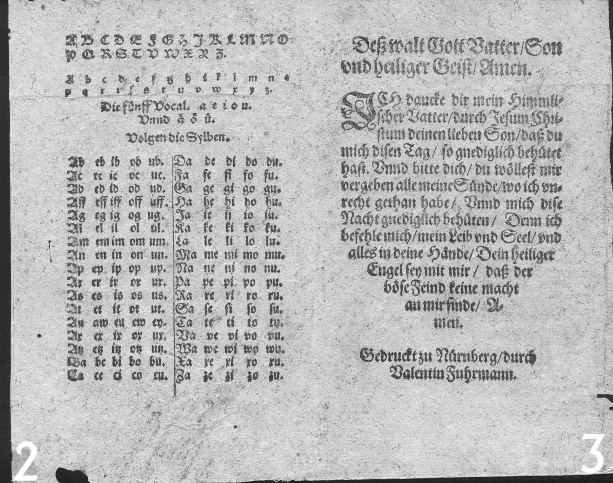 A B C D E F G H J K L M N O
P Q R S T V W X Y Z.
A b c d e f g h i k l m n o
p q r s t u v w x y z.
Die fünff Vocal. a e i o u.
Vnnd ä ö ü.
Volgen die Sylben.
Ab eb ib ob ub.
Ac ec ic oc uc.
Ad ed id od ud.
Aff eff iff off uff.
Ag eg ig og ug.
Al el il ol ul.
Am em im om um.
An en in on un.
Ap ep ip op up.
Ar er ir or ur.
As es is os us.
At et it ot ut.
Au aw eu ew ey.
Ax ex ix ox ux.
Atz etz itz otz utz.
Ba be bi bo bu.
Ca ce ci co cu.
Da de di do du.
Fa fe fi fo fu.
Ga ge gi go gu.
Ha he hi ho hu.
Ja je ij io iu.
Ka ke ki ko ku.
La le li lo lu.
Ma me mi mo mu.
Na ne ni no nu.
Pa pe pi po pu.
Ra re ri ro ru.
Sa se si so su.
Ta te ti to tu.
Va ve vi vo vu.
Wa we wi wo wu.
Xa xe xi xo xu.
Za ze zi zo zu.
2
Deß walt Gott Vatter/ Son
vnd heiliger Geist/ Amen.
ICH dancke dir mein Himmli-
scher Vatter/ durch Jesum Chri-
stum deinen lieben Son/ daß du
mich disen Tag/ so gnediglich behütet
hast. Vnnd bitte dich/ du wöllest mir
vergeben alle meine Sünde/ wo ich vn-
recht gethan habe/ Vnnd mich dise
Nacht gnediglich behüten/ Denn ich
befehle mich/ mein Leib vnd Seel/ vnd
alles in deine Hände/ Dein heiliger
Engel sey mit mir/ daß der
böse Feind keine macht
an mir finde/ A-
men.
Gedruckt zu Nürnberg/ durch
Valentin Fuhrmann.
3